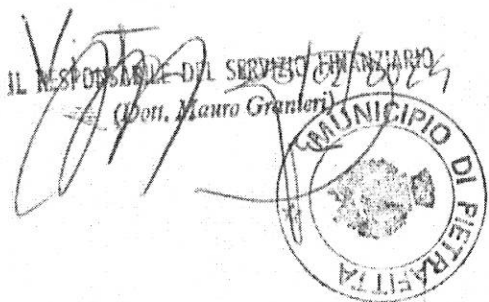 IL RESPONSABILE DEL SERVIZIO FINANZIARIO
(Dott. Mauro Granieri)
MUNICIPIO DI PIETRAFITTA